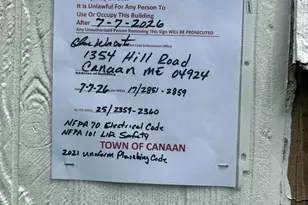 It is Unlawful For Any Person To
Use Or Occupy This Building
After 7-7-2026
Any Unauthorized Person Removing This Sign Will Be PROSECUTED
Code Enforcement Officer
1354 Hill Road
Canaan ME 04924
Address of
7-7-26 17/2851-2859
25/2359-2360
NFPA 70 Electrical Code
NFPA 101 Life Safety
TOWN OF CANAAN
2021 Uniform Plumbing Code